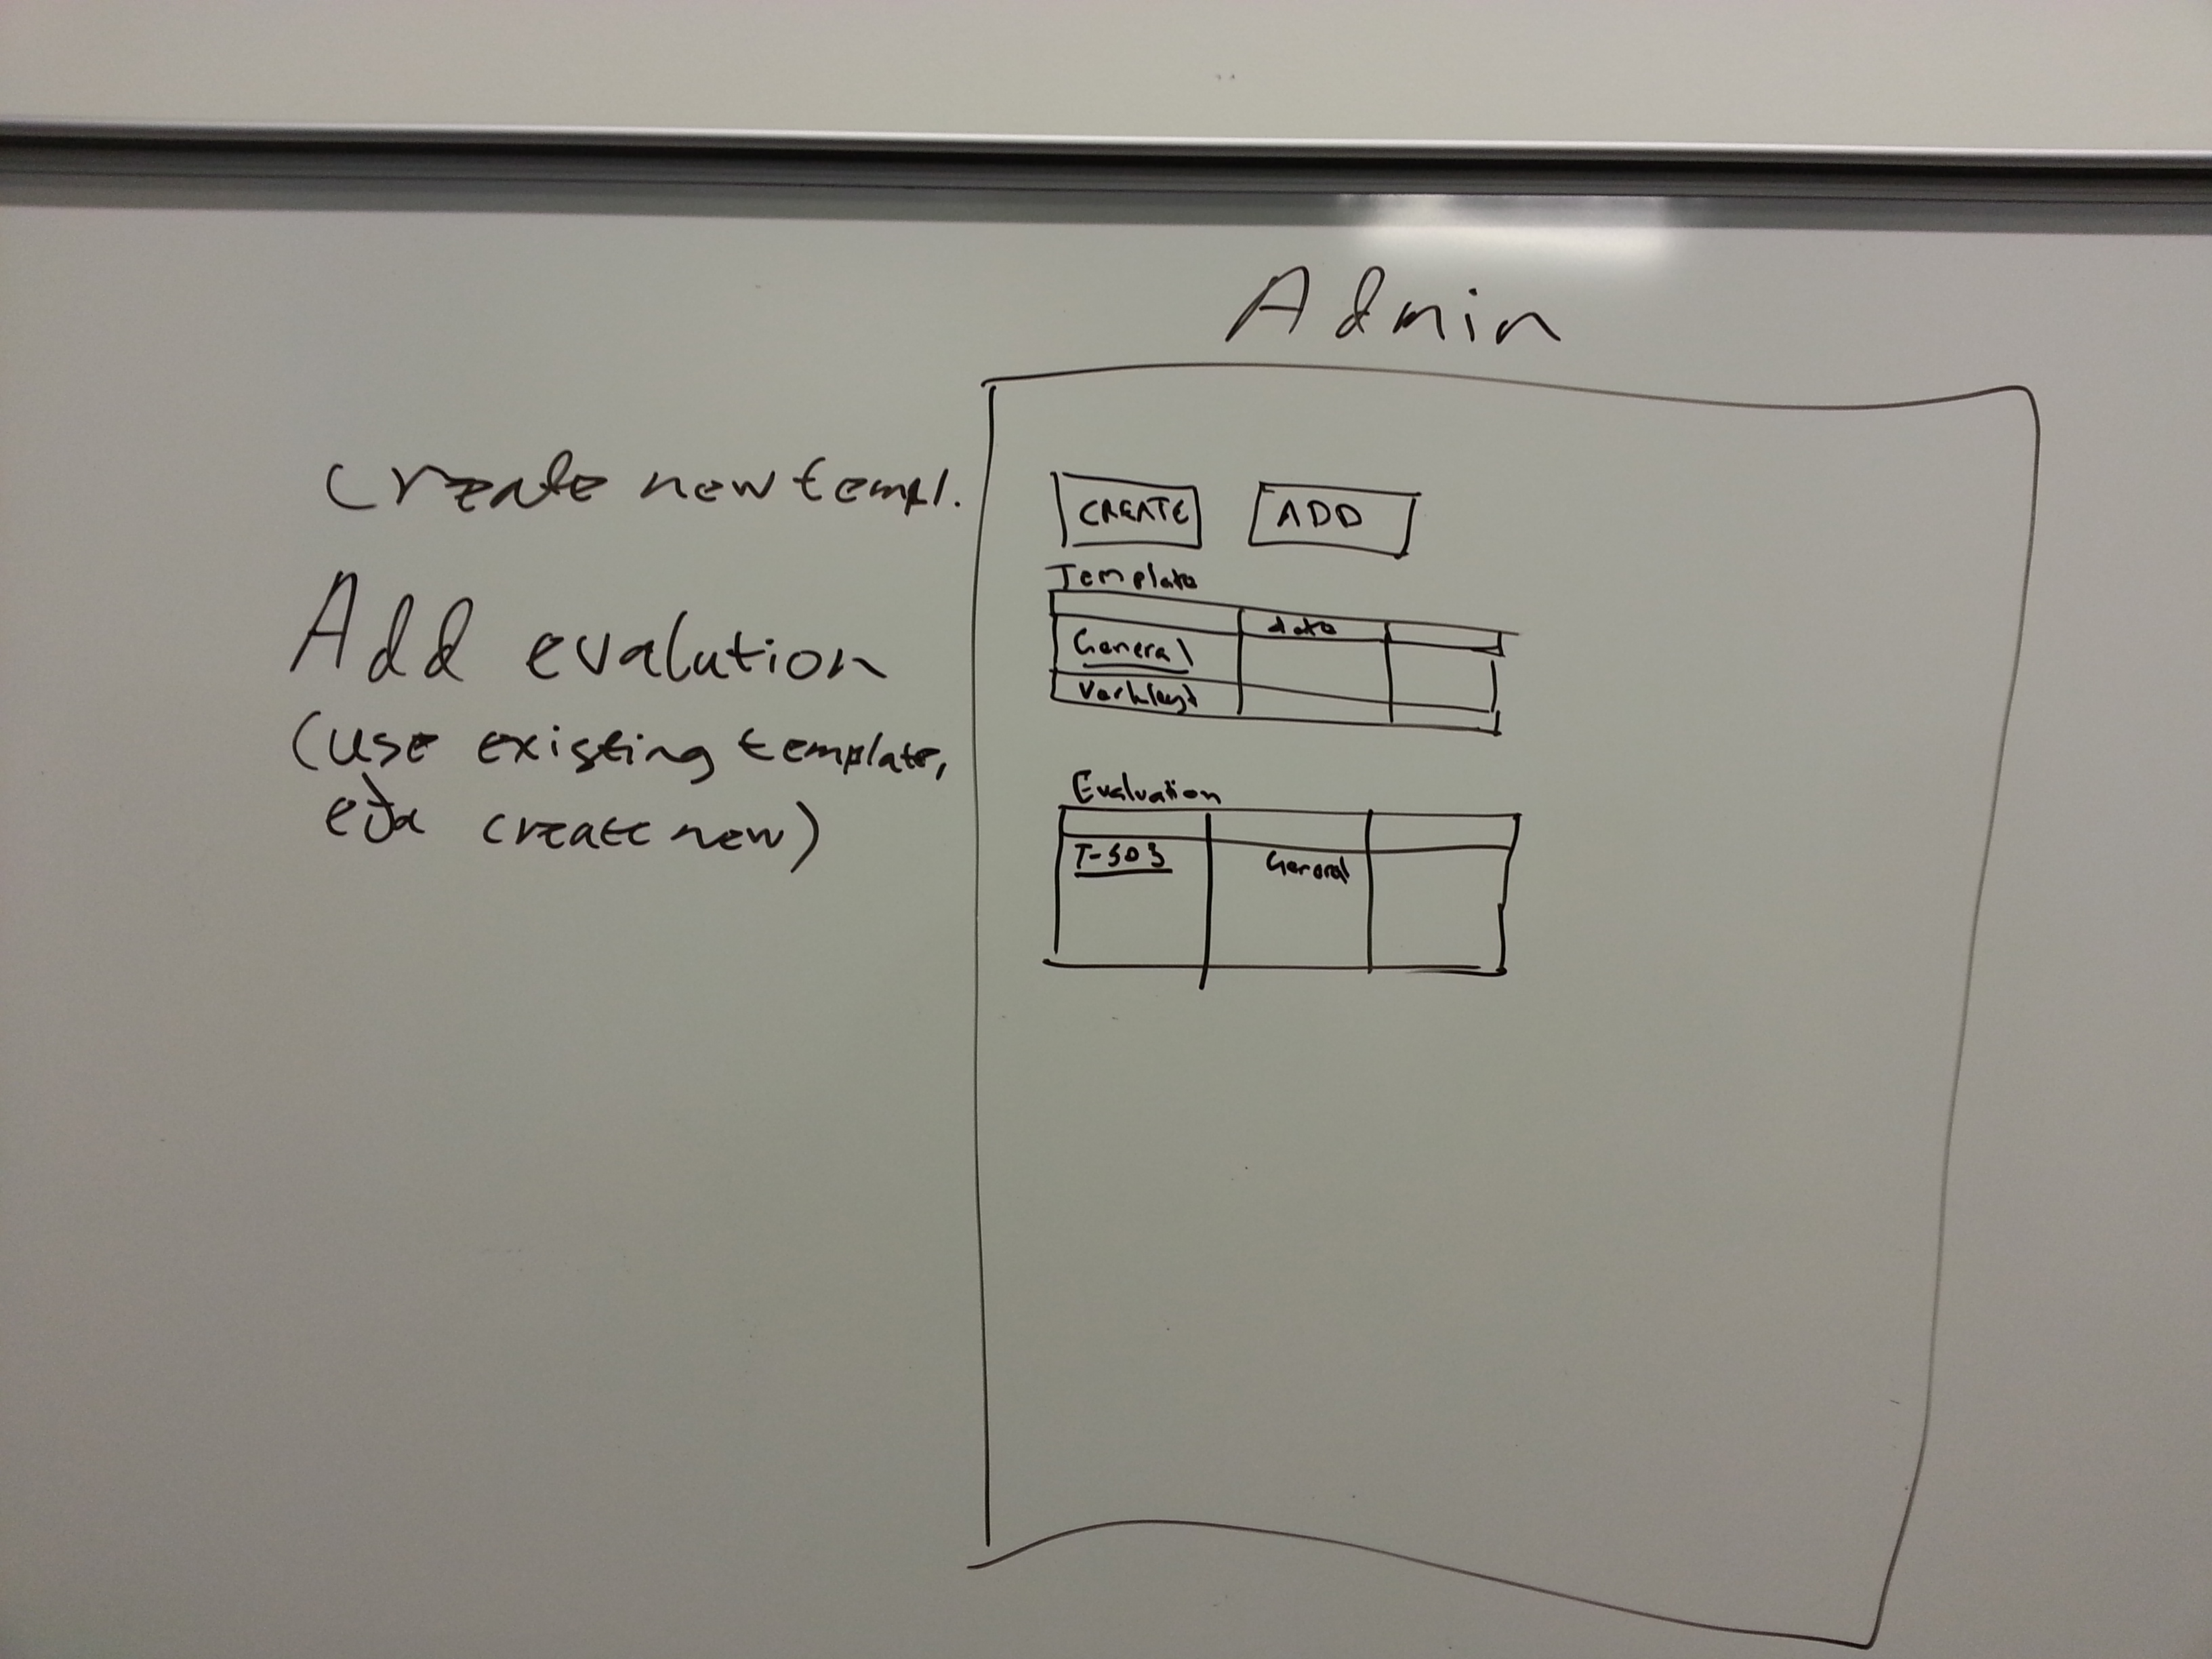 Admin
create new templ.
Add evalution
(use existing template,
eða create new)
CREATE ADD
Template
date
General
Verklegt
Evaluation
T-503 General